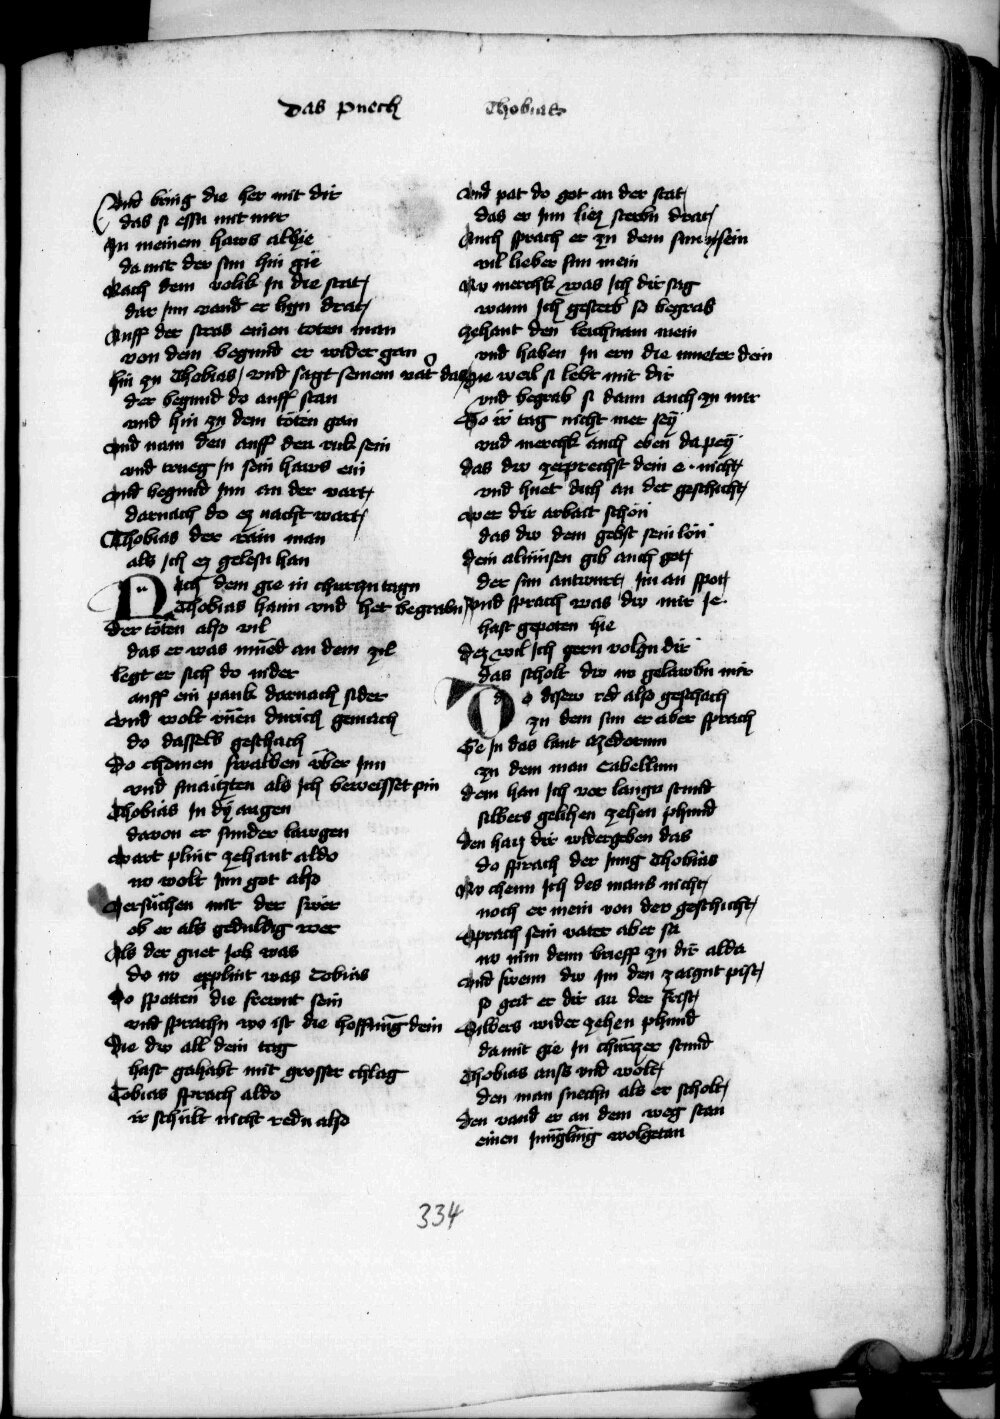 Das puech Thobias
Und bring die her mit dir
das si essn mit mir
In meinem haws alhie
da mit der sun hin gie
Nach dem volkh in die stat
dar inn vand er lign drat
Auff der stras einen toten man
von dem begund er wider gan
hin zu Thobias und sagt seinem vater das
der begund do auff stan
und hin zu dem töten gan
und nam den auff den ruk sein
und trueg in sein haws ein
und begund inn an der vart
darnach do ez nacht wart
Thobias der rain man
als ich ez gelesn han
Nach dem gie in churczn tagn
Thobias haim und het begrabn
der töten also vil
das er was müed an dem zil
legt er sich do nider
auff ein pank darnach sider
und wolt rüen durich gemach
do dasselb geschach
Do chömen swalben über inn
und smaitzten als ich beweisset pin
Thobias in dy augen
davon er sunder laugen
wart plint zehant aldo
nw wolt inn got also
versüchen mit der swer
ob er als geduldig wer
Als der guet Job was
do nw erplint was Tobias
Do spotten die freunt sein
und sprachn wo ist die hoffnung dein
Die dw all dein tag
hast gehabt mit grosser chlag
Tobias sprach aldo
ir schült nicht redn also
und pat do got an der stat
das er inn liez sterbn drat
Auch sprach er zu dem sun sein
vil lieber sun mein
Nw merchk was ich dir sag
wann ich gesterb so begrab
zehant den leichnam mein
und haben in ern die mueter dein
die weil si lebt mit dir
und begrab si dann auch zu mir
So ir tag nicht mer sey
und merchk auch eben da pey
das dw zerprechst dein e nicht
und huet dich an der geschicht
wer dir arbait schon
das dw dem gebst sein lon
dein almüsen gib auch got
der sun antwurt im an spot
und sprach was dw mir ie
hast gepoten hie
dez wil ich gern volgn dir
das scholt dw nw gelawbn mir
Do disew red also geschach
zu dem sun er aber sprach
Ge in das lant Medorum
zu dem man Gabellum
dem han ich vor langn stund
silbers gelihen zehen phund
den haiz dir widergeben das
do sprach der jung Thobias
Nw chenn ich des mans nicht
noch er mein von der geschicht
Sprach sein vater aber sa
nw nim denn brieff zu dir alda
und swenn dw im den zaignt pist
so geit er dir an der frist
Silbers wider zehen phund
da mit gie in churczer stund
Thobias auss und wolt
den man suechn als er scholt
den vand er an dem weg stan
einen jungling wolgetan
334